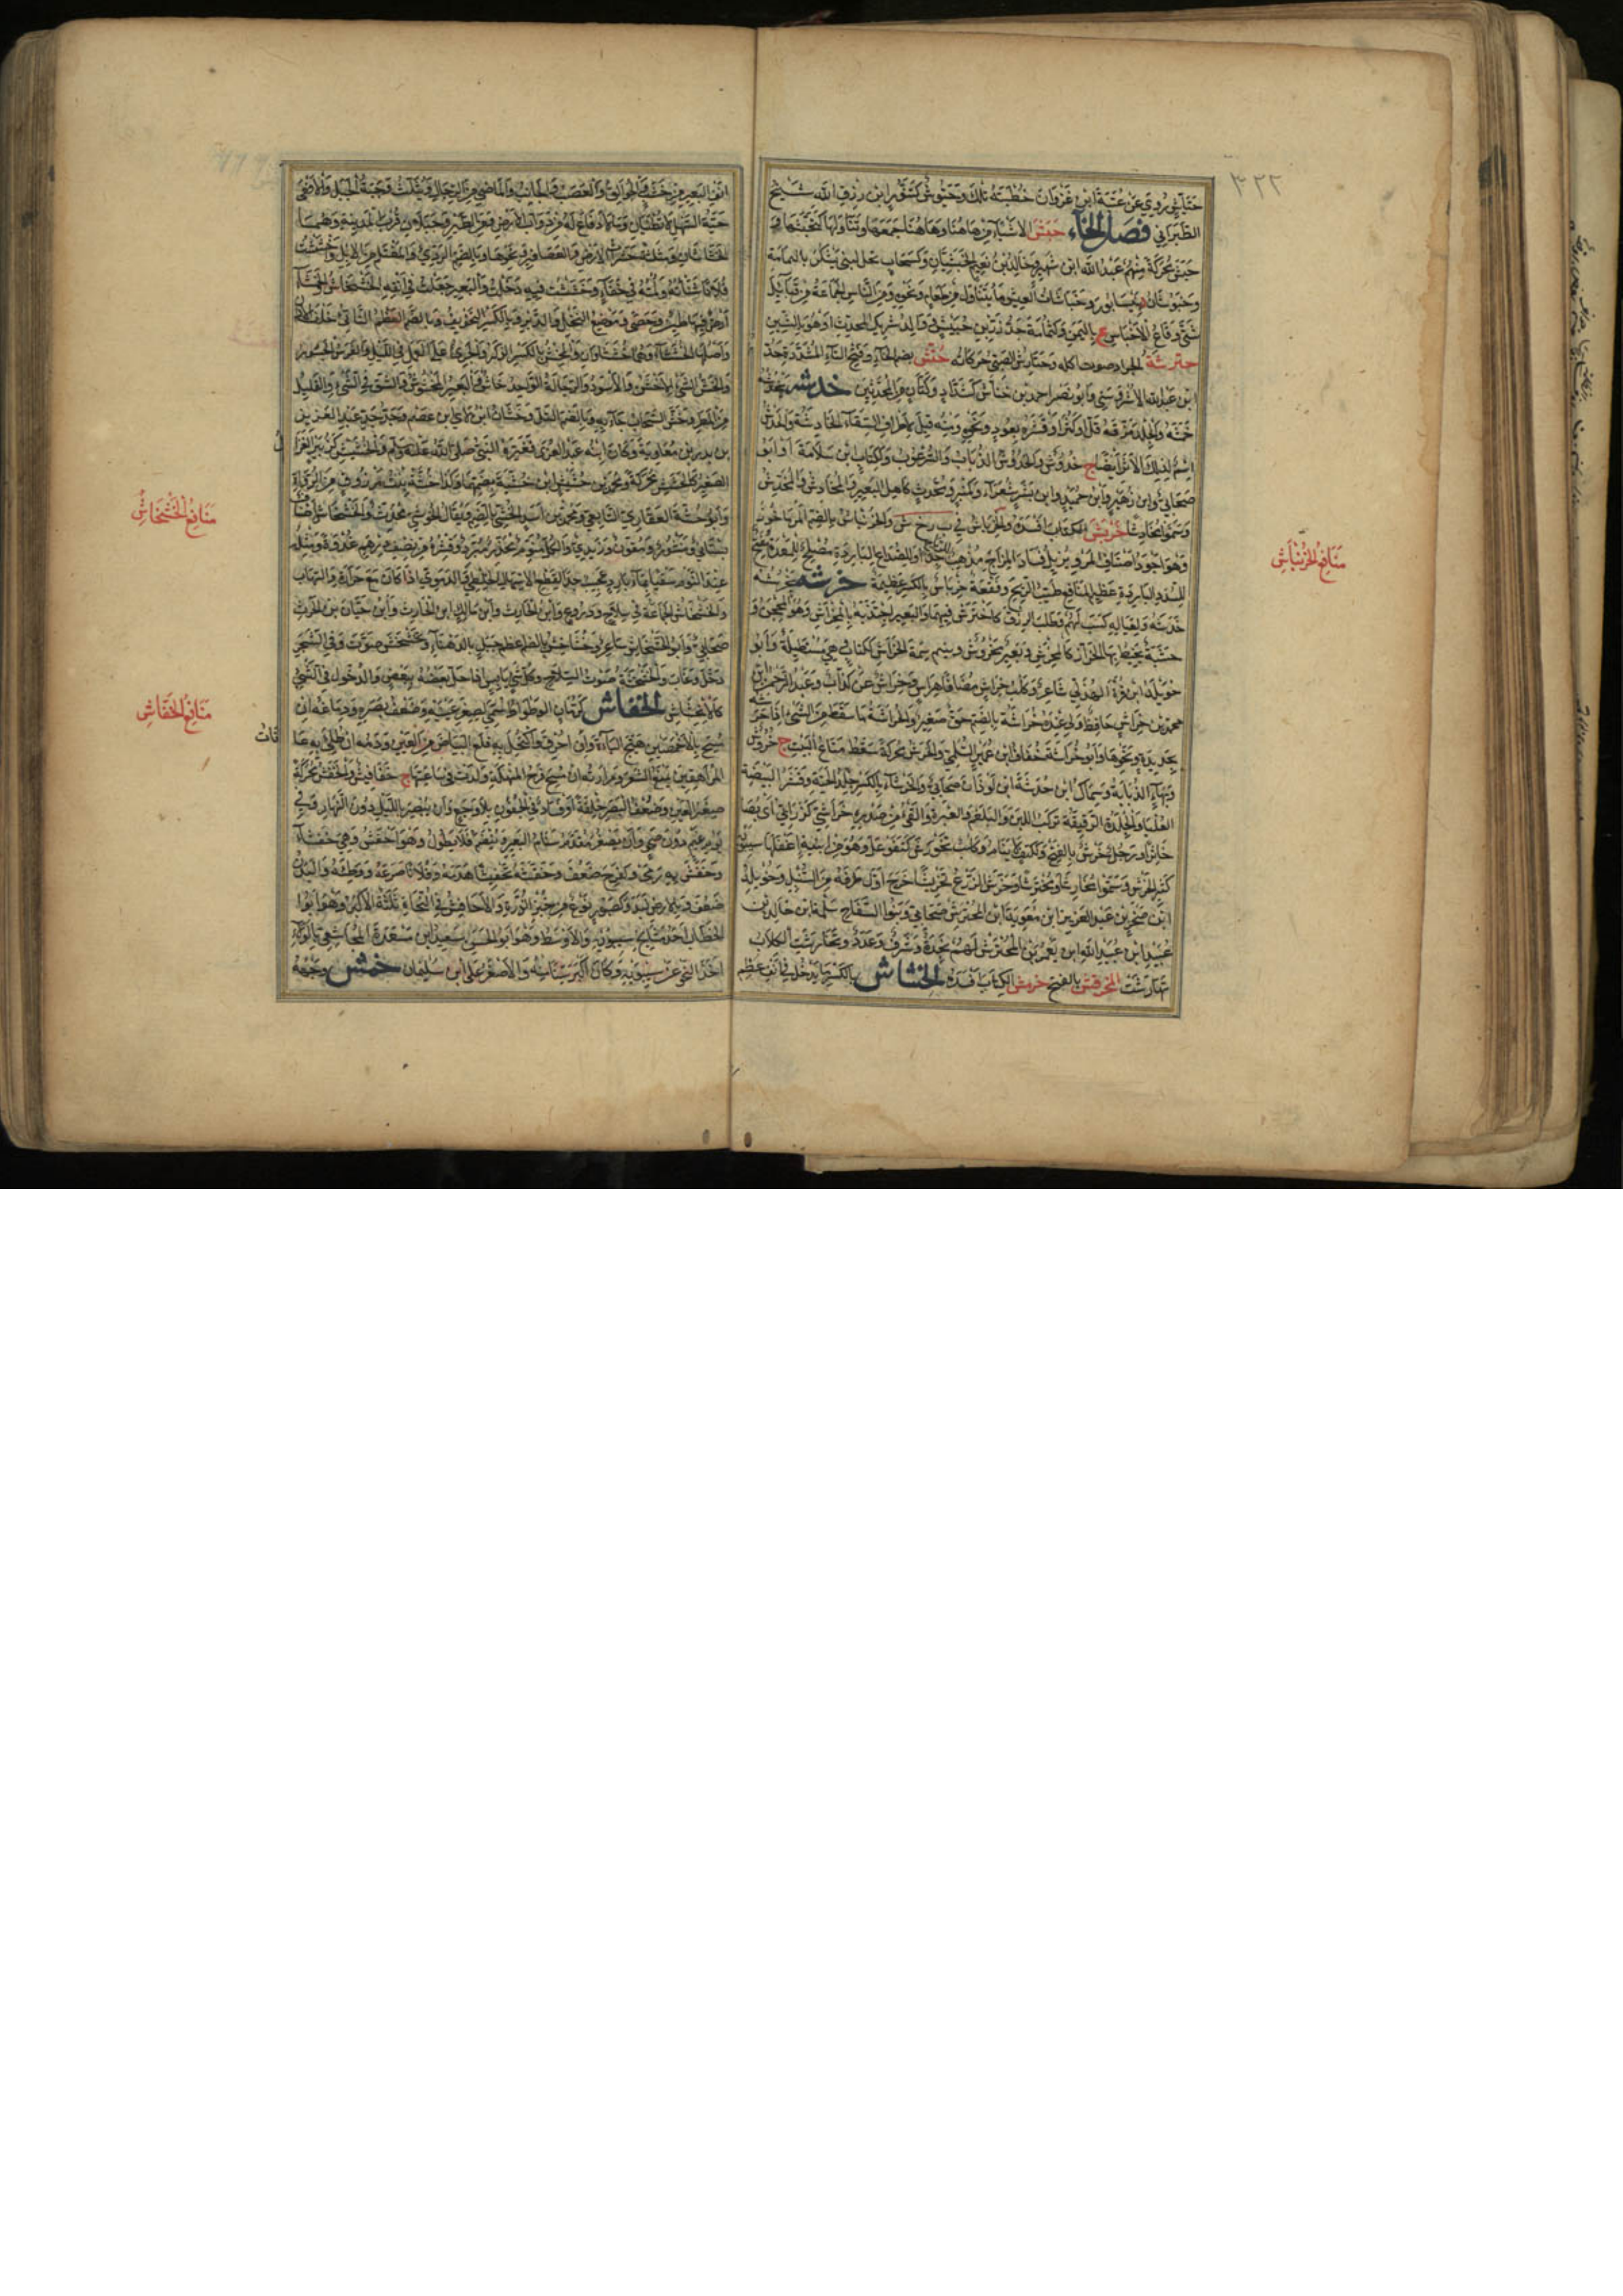 ٣٢٢
حتاتي روي عن عتبة ابن غزوان خطبته تلك وحنبوش كتنور ابن رزق الله شيخ
الطبراني فصل الخاء خبش الاشياء من هاهنا وهاهنا جمعها وتناولها كتخبشها
حبش محركة منهم عبد الله ابن شهر وخالد بن نعيم الخبشيان وكسحاب نخل لبني يشكر باليمامة
وخبوشان بنيسابور وخباشات العيش ما يتناول من طعام ونحوه ومن الناس الجماعة من قبائل
شتى وقاع الاخباش ع باليمن وكثمامة جد زر بن حبيش
خترشة الجراد صوت اكله وخترش الصبي حركاته ختش بضم الخاء وفتح التاء المشددة جد
ابن عبد الله الاشروسني وابو نصر احمد بن ختاش كشداد وكتاب من المحدثين خدشه يخدشه
خمشه والجلد مزقه قل او كثر او قشره بعود ونحوه ومنه قيل لاطراف السفاء الخادشة والخدش
اسم لذلك الاثر ايضا ج خدوش والخدوش الذباب والبرغوث وككتاب ابن سلامة او ابو
صحابي وابن زهير وابن حميد وابن بشر شعراء وكمنبر ومحدث كاهل البعير والمخادش والمخدش
وسموا مخادشا خربش الكتاب افسده والخرباش في ب ر خ ش والخرنباش بالضم المرماحوز
وهو اجود اصناف المرو يزيل فساد المزاج مذهب
للسدد الباردة عظيم المنافع طيب الريح وقفعة خرباش بالكسر عظيمة خرشه يخرشه
خدشه ولعياله كسب لهم وطلب الرزق كاخترش فيهما والبعير اجتذبه بالمخراش وهو المحجن و
خشبة يخط بها الخراز كالمخرش وبعير مخروش وسم سمة الخراش ككتاب هي مستطيلة وابو
خويلد ابن مرة الهذلي شاعر وكلب خراش مضافا هراش وخراش عن كذاب وعبد الرحمن ابن
محمد بن خراش حافظ ولي عنده خراشة بالضم حق صغير والخراشة ما سقط من الشيء اذا خرشته
بحديدة ونحوها وابو خراشة خفاف ابن عمير السلمي والخرش محركة سقط متاع البيت ج خروش
وبهاء الذبابة وسماك ابن خرشة ابن لوذان صحابي والخرشاء بالكسر جلد الحية وقشر البيضة
العليا والجلدة الرقيقة تركب اللبن والبلغم والغبرة والقى من صدره خراشي كزرابي اي بصاقا
خاثرا ورجل خرش بالفتح وككتف لا ينام وكلب نخورش كنفوعل وهو من ابنية اغفلها سيبويه
كثير الخرش وسموا مخارشا ومخترشا وخرش الزرع تخريشا خرج اول طرفه من السنبل وخويلد
ابن صخر بن عبد العزيز ابن معوية ابن المحترش صحابي وبنو السفاح سلمة ابن خالد بن
عبيد ابن عبيد الله ابن يعمر بن المحترش لهم نجدة وشرف وعدد وتخارشت الكلاب
تهارشت المخرفش بالفتح خرمش الكتاب افسده الخشاش بالكسر ما يدخل في انف عظم
منافع الخرنباش
انف البعير من خشب والجوالق والغضب والجانب والماضي من الرجال ويثلث وحية الجبل والافعى
حية السهل لا تطنيان وما لا دفاع له من دواب الارض ومن الطير وجبلان قرب المدينة وهما
الخشاشان ومثلثة حشرات الارض والعصافير ونحوها وبالضم الردي والمغتلم من الابل وخششت
فلانا شنأته ولمته في خفاء وخششت فيه دخلت والبعير جعلت في انفه الخشاش والخشاء
ارض فيها طين وحصى وموضع النحل والدبر وبالكسر التخويف وبالضم العظم الناتي خلف الاذن
واصلها الخششاء وهما خششاوان والمخش بالكسر الذكر والجري على العمل في الليل والفرس الجسور
والخش الشيء الاخشن والاسود والرجالة الواحد خاش والبعير المخشوش والشق في الشيء والقليل
من المطر وخش السحاب جاء به وبالضم التل وخشان ابن لاي بن عصم وجد جد عبد العزيز
بن بدر بن معاوية وكان اسمه عبد العزى فغيره النبي صلى الله عليه وسلم والخشيش كزبير الغزال
الصغير كالخشش محركة ومحمد بن خشيش ابن خشية بضمهما وكذا خشة بنت مرزوق من الرواة
وابو خشة الغفاري التابعي ومحمد بن اسد الخشي بالضم ويقال الخوشي محدث والخشخاش اصناف
بستاني ومنثور ومقرن وزبدي والكل منوم مخدر مبرد وقشره من نصف درهم غدوة ومثله
عند النوم سقيا بماء بارد عجيب جدا لقطع الاسهال الخلطي والدموي اذا كان مع حرارة والتهاب
والخشخاش الجماعة في سلاح ودروع وابن الحارث وابن مالك ابن الحارث وابن جناب بن الحرث
صحابي وابو الخشخاش شاعر وخشاخش بالضم اعظم جبل بالدهناء وتخشخش صوت وفي الشجر
دخل وغاب والخشخشة صوت السلاح وكل شيء يابس اذا حك بعضه ببعض والدخول في الشيء
كالانخشاش الخفاش كرمان الوطواط سمي لصغر عينيه وضعف بصره ودماغه ان
مسح بالاخمصين هيج الباءة وان احرق واكتحل به قلع البياض من العين ودمه ان طلي به عانات
المراهقين منع الشعر ومرارته ان مسح فرج المنهكة ولدت في ساعتها ج خفافيش والخفش محركة
صغر العين وضعف البصر خلقة او فساد في الجفون بلا وجع وان يبصر بالليل دون النهار وفي
يوم غيم دون صحو وان يصغر مقدم سنام البعير وينضم فلا يطول وهو اخفش وهي خفشاء
وخفش به رمى وكفرح ضعف وخفشه تخفيشا هدمه وفلانا صرعه ووطئه والبدن
ضعف وبالارض لبد وكصبور نوع من خبز الذرة والاخافش في النحاة ثلثة الاكبر وهو ابو
الخطاب احد مشايخ سيبويه والاوسط وهو ابو الحسن سعيد ابن مسعدة المجاشعي بالولاء
اخذ النحو عن سيبويه وكان اكبر سنا منه والاصغر علي ابن سليمان خمش وجهه
منافع الخشخاش
منافع الخفاش